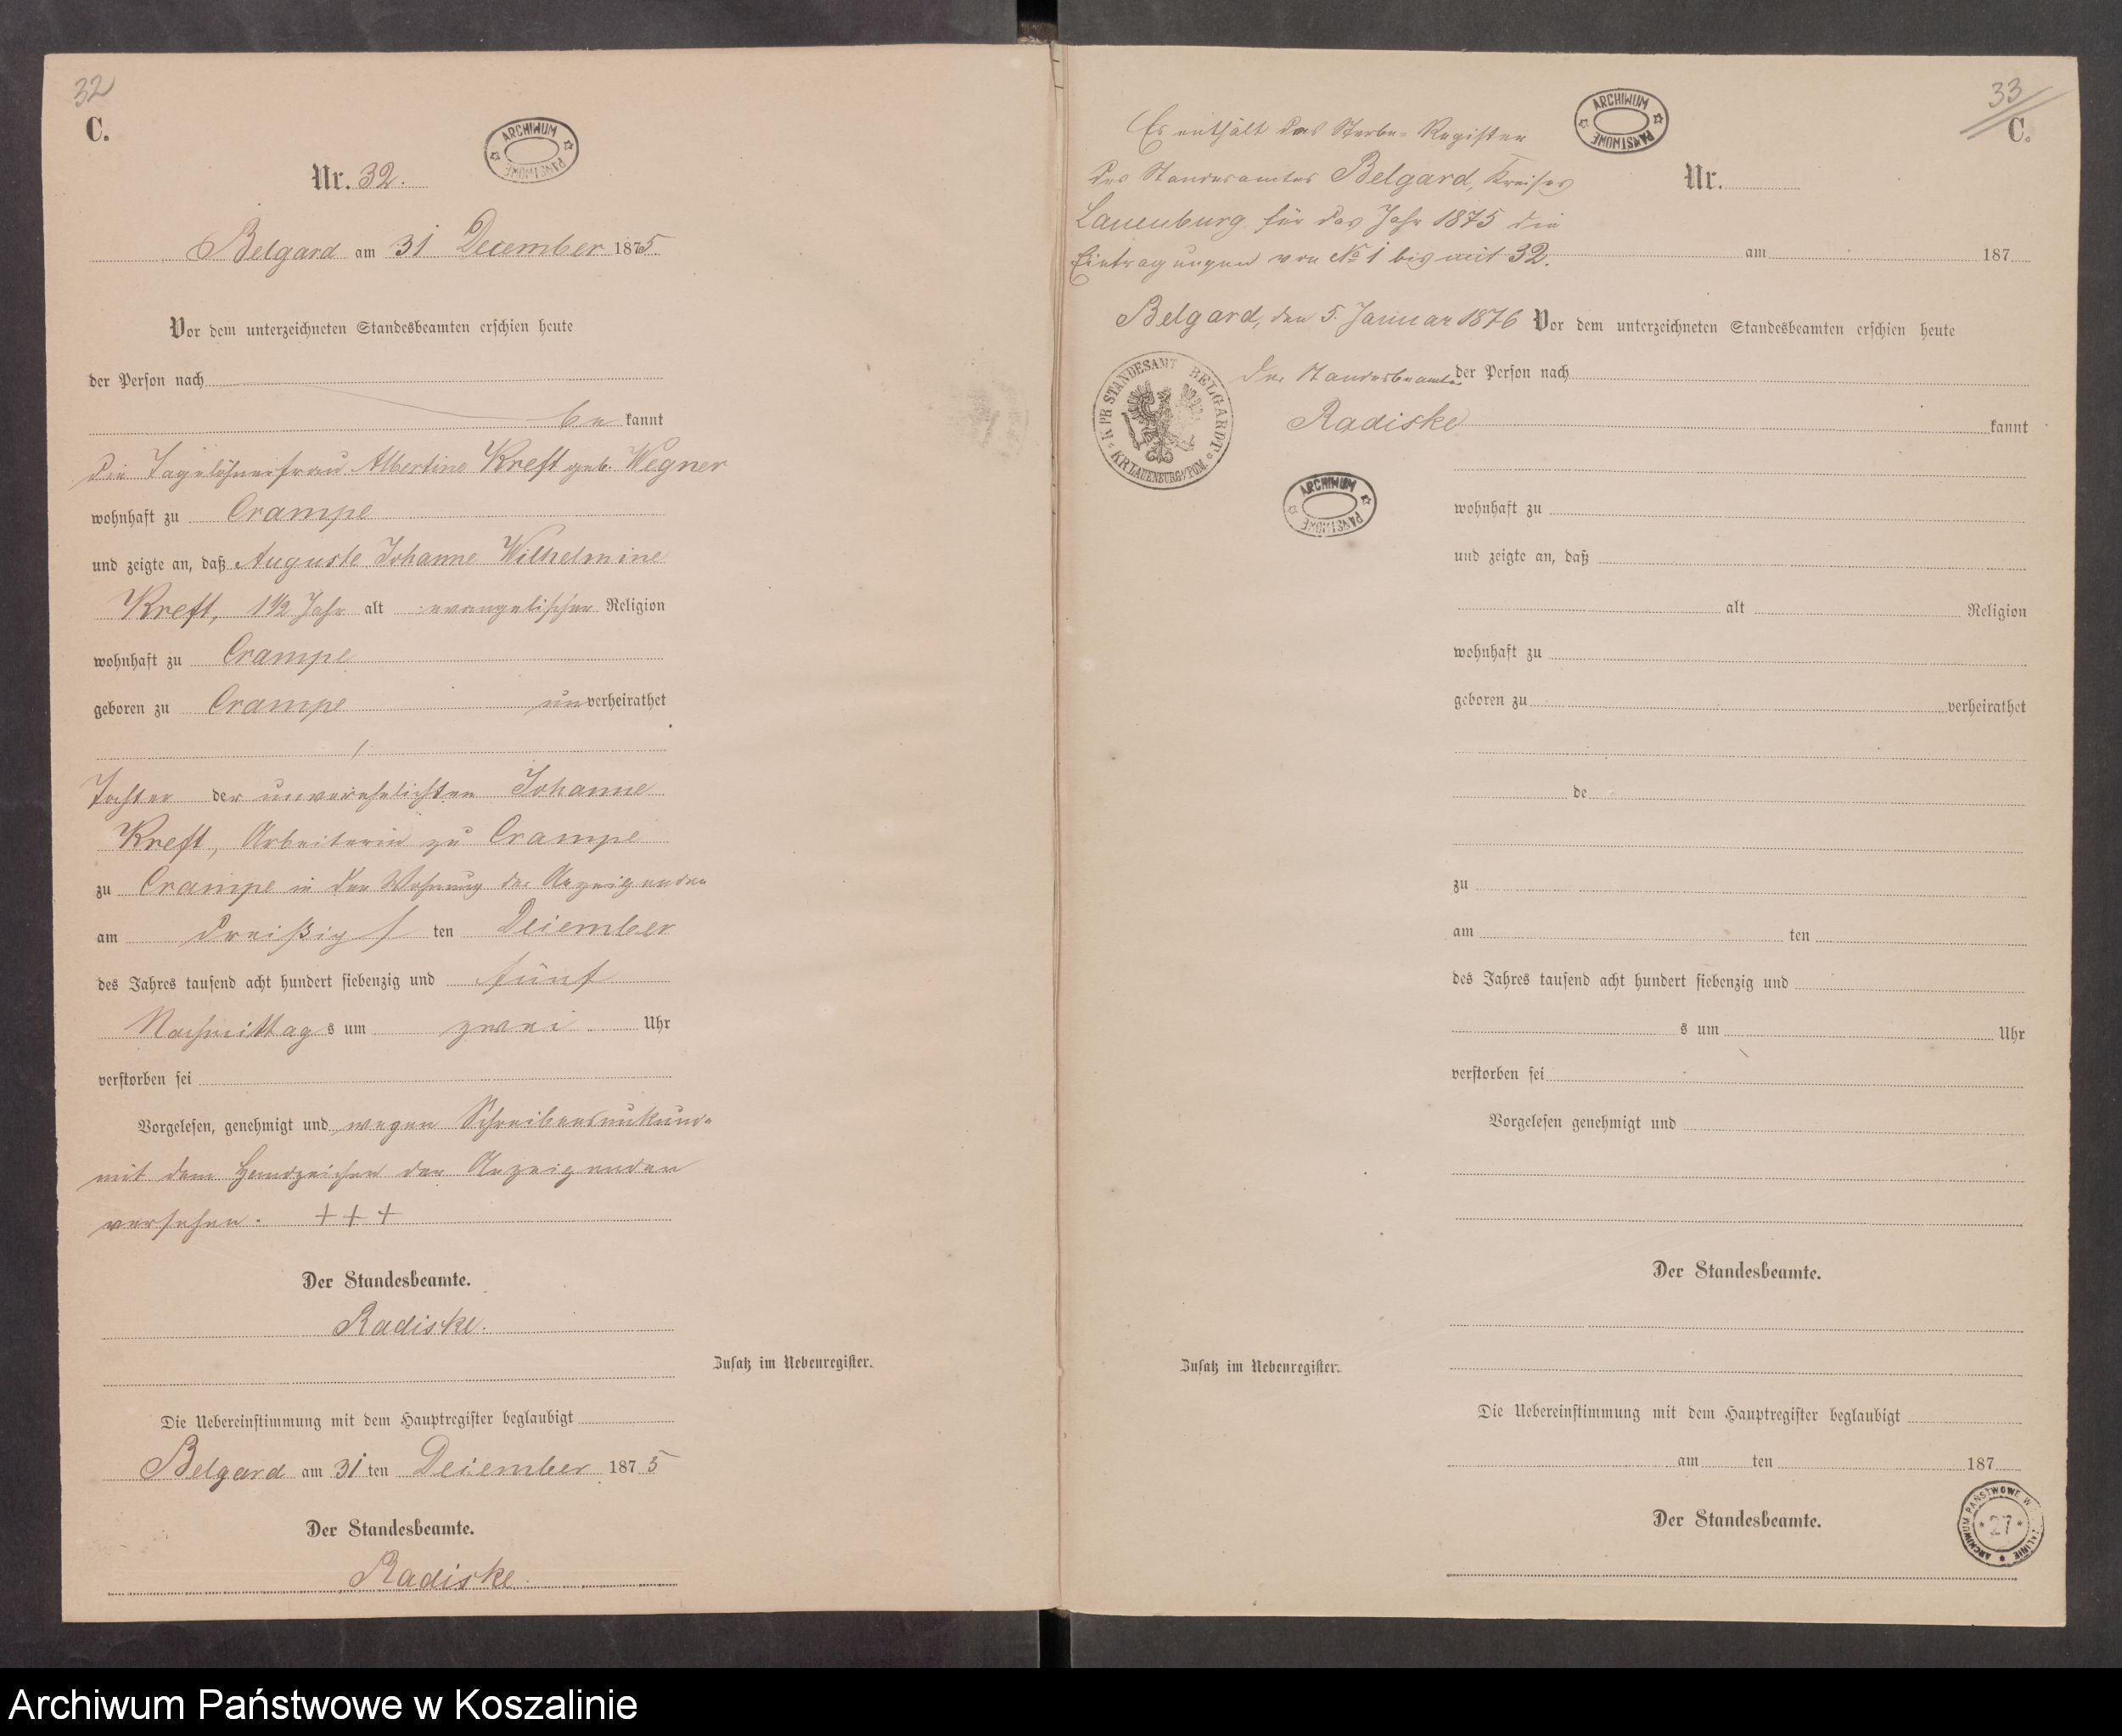 32
C.
ARCHIWUM PAŃSTWOWE
Nr. 32.
Belgard am 31 December 1875.
Vor dem unterzeichneten Standesbeamten erschien heute
der Person nach
be kannt
die Tagelöhnerfrau Albertine Kreft geb. Wegner
wohnhaft zu Crampe
und zeigte an, daß Auguste Johanne Wilhelmine
Kreft, 1 1/2 Jahr alt evangelischer Religion
wohnhaft zu Crampe
geboren zu Crampe unverheirathet
Tochter der unverehelichten Johanne
Kreft, Arbeiterin zu Crampe
zu Crampe in der Wohnung der Anzeigenden
am dreißigsten December
des Jahres tausend acht hundert siebenzig und fünf
Nachmittags um zwei Uhr
verstorben sei
Vorgelesen, genehmigt und wegen Schreibensunkunde
mit dem Handzeichen der Anzeigenden
versehen. +++
Der Standesbeamte.
Radiske.
Zusatz im Nebenregister.
Die Uebereinstimmung mit dem Hauptregister beglaubigt
Belgard am 31 ten December 1875
Der Standesbeamte.
Radiske
33
C.
ARCHIWUM PAŃSTWOWE
Es enthält das Sterbe-Register
des Standesamtes Belgard, Kreises
Lauenburg für das Jahr 1875 die
Eintragungen von No 1 bis mit 32.
Belgard, den 5. Januar 1876
K PR STANDESAMT BELGARDT KR LAUENBURG/POM.
Der Standesbeamte
Radiske
ARCHIWUM PAŃSTWOWE
Nr.
am 187
Vor dem unterzeichneten Standesbeamten erschien heute
der Person nach
kannt
wohnhaft zu
und zeigte an, daß
alt Religion
wohnhaft zu
geboren zu verheirathet
de
zu
am ten
des Jahres tausend acht hundert siebenzig und
s um Uhr
verstorben sei
Vorgelesen genehmigt und
Der Standesbeamte.
Zusatz im Nebenregister.
Die Uebereinstimmung mit dem Hauptregister beglaubigt
am ten 187
Der Standesbeamte.
ARCHIWUM PAŃSTWOWE W KOSZALINIE
27
Archiwum Państwowe w Koszalinie